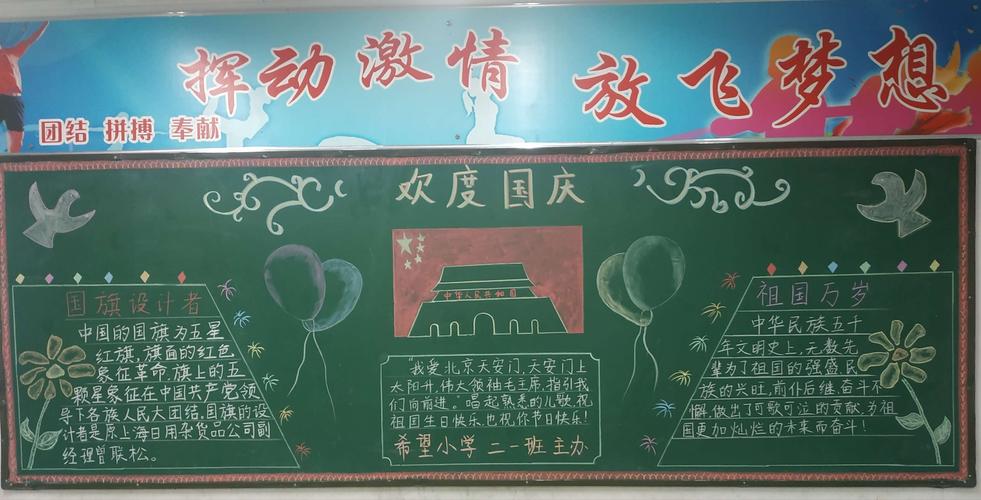 挥动激情 放飞梦想
团结 拼搏 奉献
欢度国庆
中华人民共和国
国旗设计者
中国的国旗为五星
红旗,旗面的红色
象征革命,旗上的五
颗星象征在中国共产党领
导下各族人民大团结,国旗的设
计者是原上海日用杂货品公司副
经理曾联松。
"我爱北京天安门,天安门上
太阳升,伟大领袖毛主席,指引我
们向前进。"唱起熟悉的儿歌,祝
祖国生日快乐,也祝你节日快乐!
希望小学 二一班 主办
祖国万岁
中华民族五千
年文明史上,无数先
辈为了祖国的强盛,民
族的兴旺,前仆后继,奋斗不
懈,做出了可歌可泣的贡献,为祖
国更加灿烂的未来而奋斗!